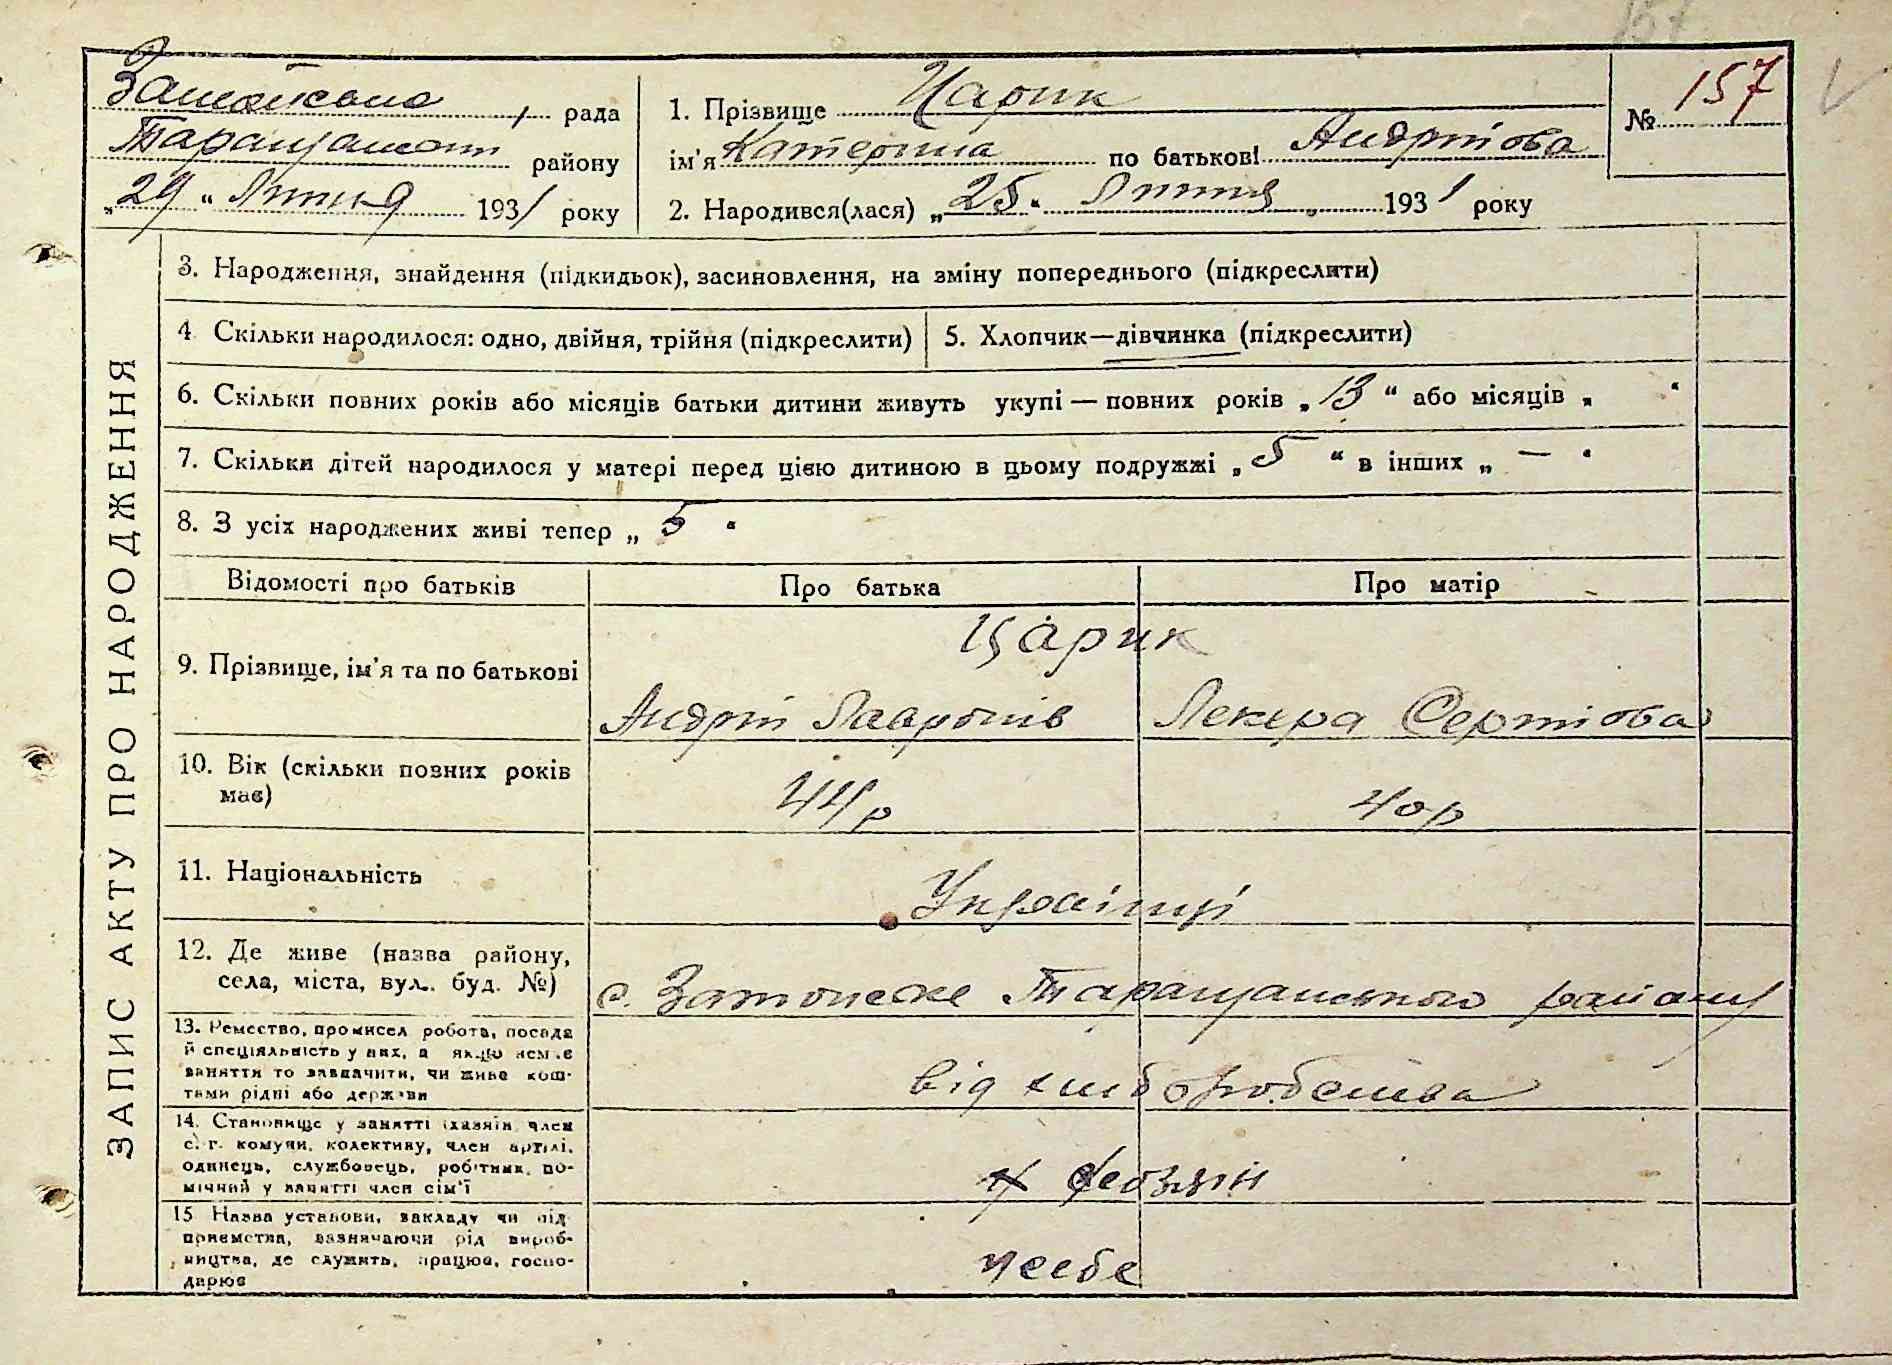 157
Затонська рада
Таращанськ району
„29“ Липня 1931 року
1. Прізвище Царик
ім'я Катерина по батькові Андріїова
2. Народився(лася) „25“ Липня 1931 року
№ 157
ЗАПИС АКТУ ПРО НАРОДЖЕННЯ
3. Народження, знайдення (підкидьок), засиновлення, на зміну попереднього (підкреслити)
4. Скільки народилося: одно, двійня, трійня (підкреслити)
5. Хлопчик—дівчинка (підкреслити)
6. Скільки повних років або місяців батьки дитини живуть укупі — повних років „13“ або місяців „ “
7. Скільки дітей народилося у матері перед цією дитиною в цьому подружжі „5“ в інших „—“
8. З усіх народжених живі тепер „5“
Відомості про батьків
Про батька
Про матір
9. Прізвище, ім'я та по батькові
Царик
Андрій Лавронів
Лекера Сергіова
10. Вік (скільки повних років
має)
44 р
40 р
11. Національність
Українці
12. Де живе (назва району,
села, міста, вул. буд. №)
с. Затонське Таращанського району
13. Ремество, промисел робота, посада
й спеціяльність у них, а якщо нема є
заняття то зазначити, чи живе кош-
тами рідні або держави
від хліборобства
14. Становище у занятті (хазяїн, член
с. г. комуни, колективу, член артілі,
одинець, службовець, робітник, по-
мічний у занятті член сім'ї
хазяїн
15 Назва установи, закладу чи під
приємства, зазначаючи рід вироб-
ництва, де служить, працює, госпо-
дарює
у себе